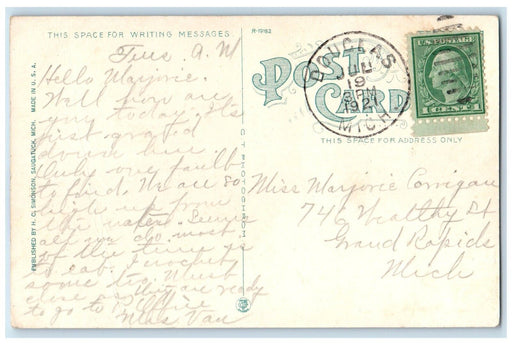 THIS SPACE FOR WRITING MESSAGES
R-79162
Tues. A.M
Hello Marjorie.
Well how are
you today. It's
just grand
down here
Only one fault
to find. We are so
high up from
the water. Seems
all we do most
of the time is
to eat. Crochety
some to. Must
close as they are ready
to go to
Miss Van
POST CARD
DOUGLAS
JUL
19
PM
1921
MICH
U.S. POSTAGE
1 CENT 1
THIS SPACE FOR ADDRESS ONLY
Miss Marjorie Corrigan
746 Wealthy St
Grand Rapids
Mich
PUBLISHED BY H. C. SIMONSON, SAUGATUCK, MICH. MADE IN U.S.A.